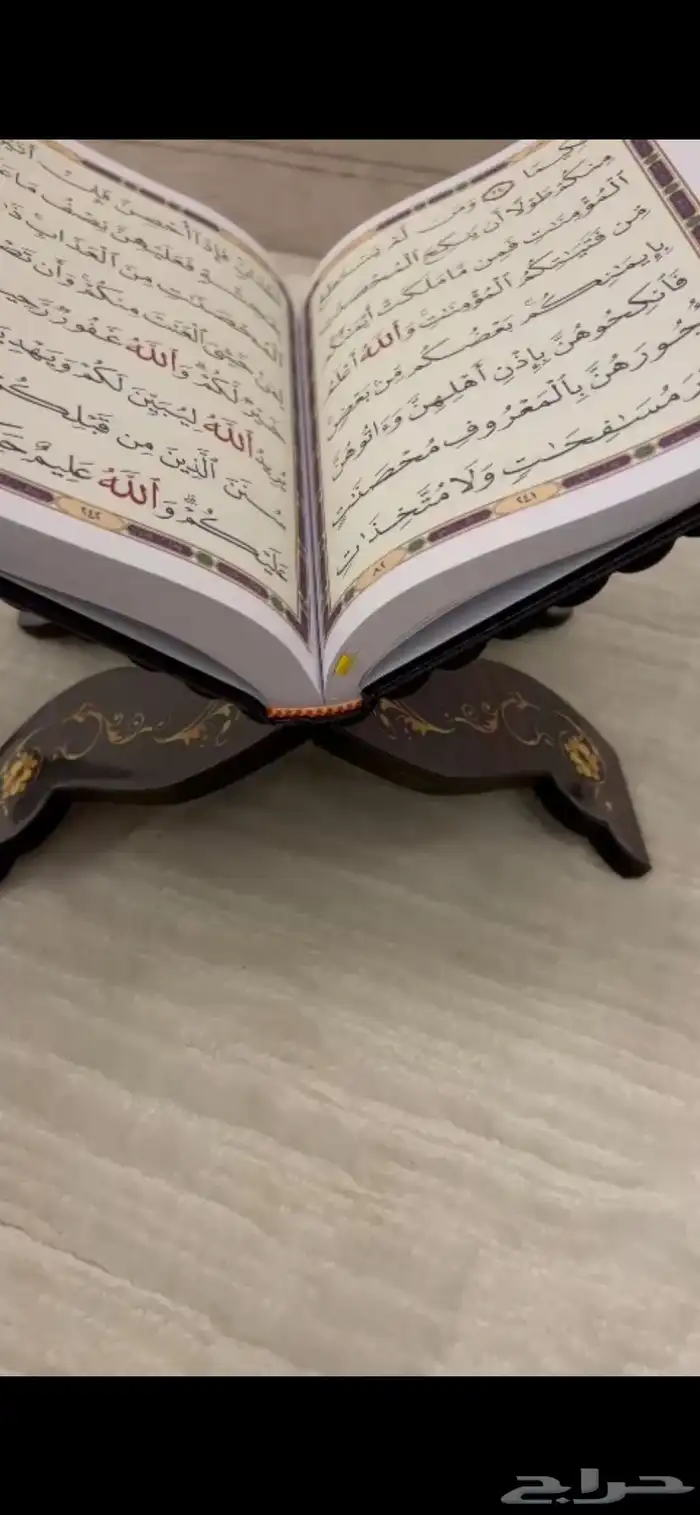 وَمَن لَّمْ يَسْتَطِعْ
مِنكُمْ طَوْلًا أَن يَنكِحَ ٱلْمُحْصَنَٰتِ
ٱلْمُؤْمِنَٰتِ فَمِن مَّا مَلَكَتْ أَيْمَٰنُكُم
مِّن فَتَيَٰتِكُمُ ٱلْمُؤْمِنَٰتِ وَٱللَّهُ أَعْلَمُ
بِإِيمَٰنِكُم بَعْضُكُم مِّنۢ بَعْضٍ
فَٱنكِحُوهُنَّ بِإِذْنِ أَهْلِهِنَّ وَءَاتُوهُنَّ
بِٱلْمَعْرُوفِ مُحْصَنَٰتٍ
مُسَٰفِحَٰتٍ وَلَا مُتَّخِذَٰتِ
٢٤١
٨٢
فَإِذَآ أُحْصِنَّ فَإِنْ
فَعَلَيْهِنَّ نِصْفُ مَا
ٱلْمُحْصَنَٰتِ مِنَ ٱلْعَذَابِ
لِمَنْ خَشِىَ ٱلْعَنَتَ مِنكُمْ وَأَن
خَيْرٌ لَّكُمْ وَٱللَّهُ غَفُورٌ
يُرِيدُ ٱللَّهُ لِيُبَيِّنَ لَكُمْ
سُنَنَ ٱلَّذِينَ مِن قَبْلِكُمْ
عَلَيْكُمْ وَٱللَّهُ عَلِيمٌ
٢٤٢
حراج